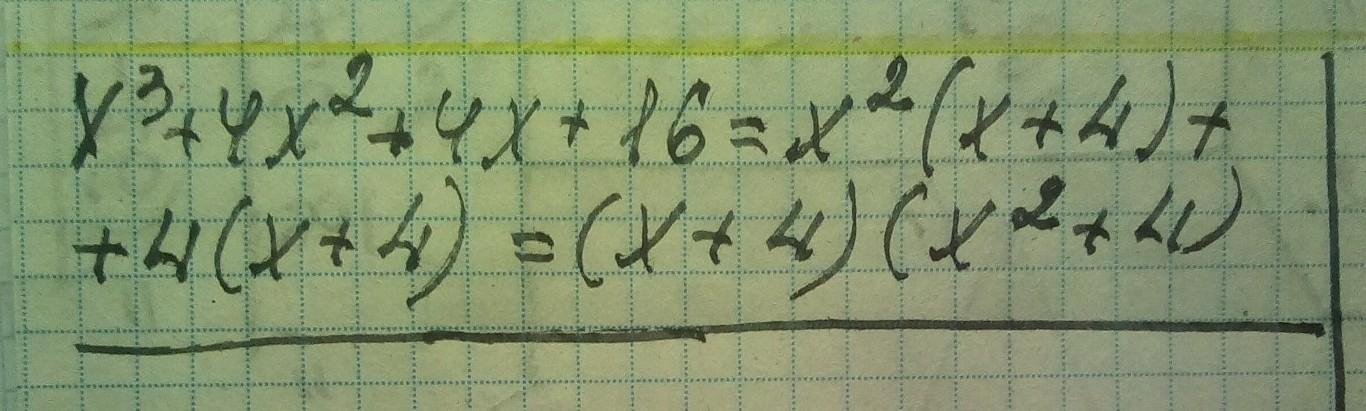 x³+4x²+4x+16=x²(x+4)+
+4(x+4)=(x+4)(x²+4)